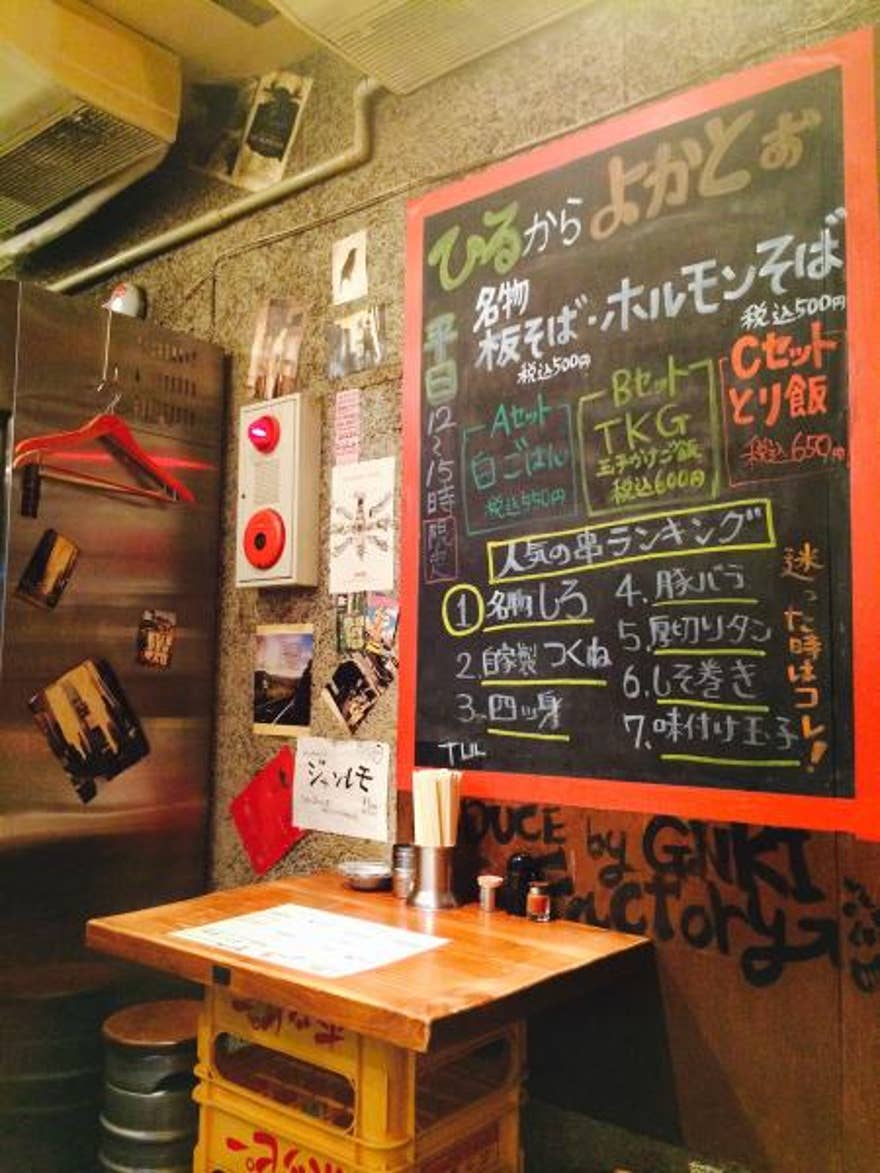 ひるから よかとぉ
名物
板そば・ホルモンそば
税込500円
税込500円
平日
12
〜
15
時
限定
Aセット
白ごはん
税込550円
Bセット
TKG
玉子かけご飯
税込600円
Cセット
とり飯
税込650円
人気の串ランキング
1 名物しろ
2. 自家製つくね
3. 四ッ身
4. 豚バラ
5. 厚切りタン
6. しそ巻き
7. 味付け玉子
迷った時はコレ!
by GENKI
Factory